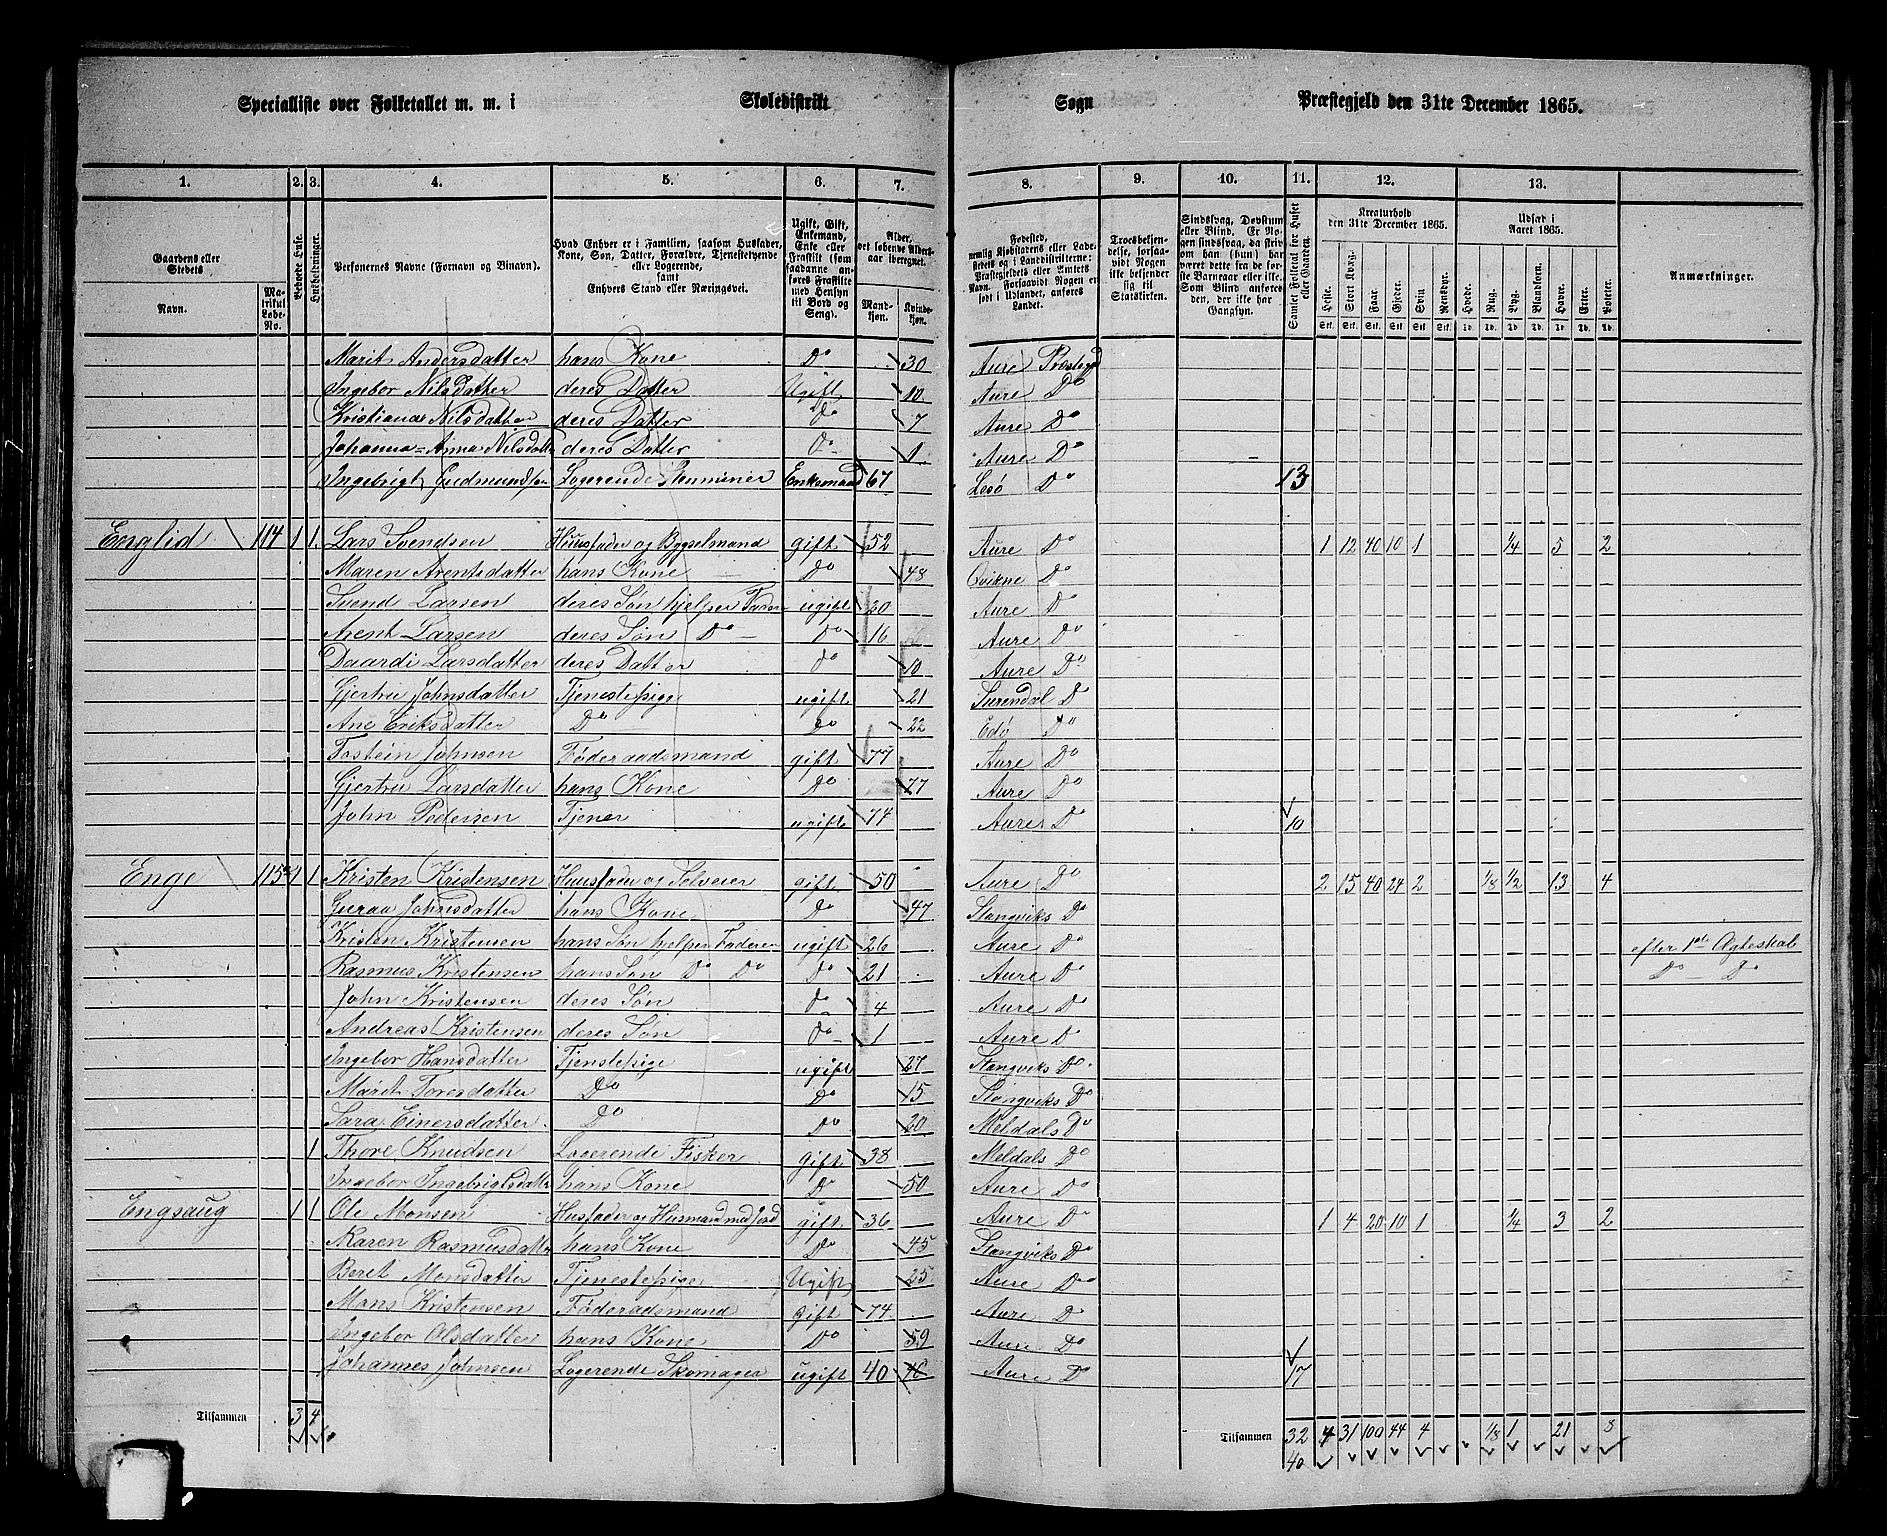 Specialliste over Folketallet m. m. i Skoledistrikt Sogn Præstegjeld den 31te December 1865.
1. 2. 3. 4. 5. 6. 7. 8. 9. 10. 11. 12. 13.
Gaardens eller Stedets Navn. Matrikul Løbe-No. Beboede Huse. Husholdninger. Personernes Navne (Fornavn og Binavn). Hvad Enhver er i Familien, saasom Husfader, Kone, Søn, Datter, Forældre, Tjenestetyende eller Logerende, samt Enhvers Stand eller Næringsvei. Ugift, Gift, Enkemand, Enke eller Fraskilt (som saadanne anføres Fraskilte med Hensyn til Bord og Seng). Alder, det løbende Alders-aar iberegnet. Mand-kjøn. Kvinde-kjøn.
Fødested, nemlig Kjøbstadens eller Ladestedets og i Landdistrikterne: Præstegjeldets eller Amtets Navn. Forsaavidt Nogen er født i Udlandet, anføres Landet. Troesbekjendelse, forsaavidt Nogen ikke bekjender sig til Statskirken. Sindssvag, Døvstum eller Blind. Er Nogen sindssvag, da skrives om han (hun) har været dette fra de første Barneaar eller ikke. Som Blind anføres den, der ikke har Gangsyn. Samlet Folketal for Huset eller Gaarden. Kreaturhold den 31te December 1865. Heste. Stort Kvæg. Faar. Gjeder. Svin. Rensdyr. Udsæd i Aaret 1865. Hvede. Rug. Byg. Blandkorn. Havre. Erter. Poteter. Anmærkninger.
Marit Andersdatter hans Kone Do 30 Aure Præstegd
Ingebor Nilsdatter deres Datter Ugift 10 Aure Do
Kristiana Nilsdatter deres Datter Do 7 Aure Do
Johanna=Anna Nilsdatter deres Datter Do 1 Aure Do
Ingebrigt Gudmundsen Logerende Stenminer Enkemand 67 Lesø Do 13
Englid 114 1 1 Lars Svendsen Huusfader og Bygselmand gift 52 Aure Do 1 12 40 10 1 1/4 5 2
Maren Arentsdatter hans Kone Do 48 Qvikne Do
Svend Larsen deres Søn hjelper Fader ugift 20 Aure Do
Arent Larsen deres Søn Do Do 16 Aure Do
Daardi Larsdatter deres Datter Do 10 Aure Do
Gjertru Johnsdatter Tjenestepige ugift 21 Surendal Do
Ane Eriksdatter Do Do 22 Edø Do
Tostein Johnsen Føderaadsmand gift 77 Aure Do
Gjertru Larsdatter hans Kone Do 77 Aure Do
John Pedersen Tjener ugift 74 Aure Do 10
Enge 115 1 1 Kristen Kristensen Huusfader og Selveier gift 50 Aure Do 2 15 40 24 2 1/8 1/2 13 4
Guraa Johnsdatter hans Kone Do 47 Stangviks Do
Kristen Kristensen hans Søn hjelper Faderen ugift 26 Aure Do efter 1ste Ægteskab
Rasmus Kristensen hans Søn Do Do Do 21 Aure Do Do Do
John Kristensen deres Søn Do 4 Aure Do
Andreas Kristensen deres Søn Do 1 Aure Do
Ingebor Hansdatter Tjenstepige ugift 27 Stangviks Do
Marit Toresdatter Do Do 15 Stangviks Do
Sara Einersdatter Do Do 20 Meldals Do
1 Thore Knudsen Logerende Fisker gift 38 Meldals Do
Ingebor Ingebrigtsdatter hans Kone Do 50 Aure Do
Engsaug 1 1 Ole Monsen Husfader og Husmand med Jord gift 36 Aure Do 1 4 20 10 1 1/4 3 2
Karen Rasmusdatter hans Kone Do 45 Stangviks Do
Beret Monsdatter Tjenestepige Ugift 25 Aure Do
Mons Kristensen Føderadsmand gift 74 Aure Do
Ingebor Olsdatter hans Kone Do 59 Aure Do
Johannes Johnsen Logerende Skomager ugift 40 40 Aure Do 17
Tilsammen 3 4 Tilsammen 32 4 31 100 44 4 1/8 1 21 8
40